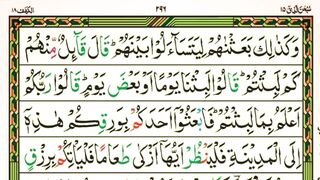 الكهف ١٨ ٢٩٦ سبحن الذى ١٥
وَكَذٰلِكَ بَعَثْنٰهُمْ لِيَتَسَآءَلُوْا بَيْنَهُمْ ؕ قَالَ قَآئِلٌ مِّنْهُمْ
كَمْ لَبِثْتُمْ ؕ قَالُوْا لَبِثْنَا يَوْمًا اَوْ بَعْضَ يَوْمٍ ؕ قَالُوْا رَبُّكُمْ
اَعْلَمُ بِمَا لَبِثْتُمْ ؕ فَابْعَثُوْۤا اَحَدَكُمْ بِوَرِقِكُمْ هٰذِهٖۤ
اِلَى الْمَدِيْنَةِ فَلْيَنْظُرْ اَيُّهَاۤ اَزْكٰى طَعَامًا فَلْيَاْتِكُمْ بِرِزْقٍ